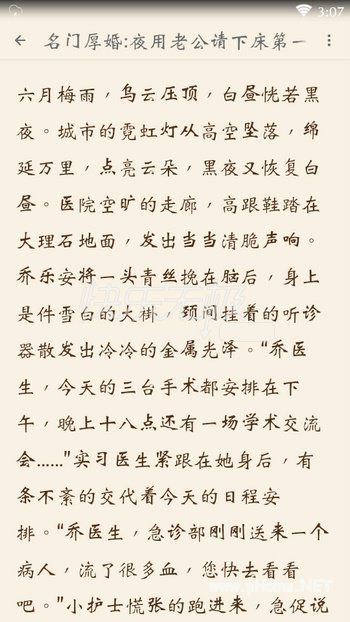 3:07
名门厚婚:夜用老公请下床第一
六月梅雨，乌云压顶，白昼恍若黑
夜。城市的霓虹灯从高空坠落，绵
延万里，点亮云朵，黑夜又恢复白
昼。医院空旷的走廊，高跟鞋踏在
大理石地面，发出当当清脆声响。
乔乐安将一头青丝挽在脑后，身上
是件雪白的大褂，颈间挂着的听诊
器散发出冷冷的金属光泽。“乔医
生，今天的三台手术都安排在下
午，晚上十八点还有一场学术交流
会......”实习医生紧跟在她身后，有
条不紊的交代着今天的日程安
排。“乔医生，急诊部刚刚送来一个
病人，流了很多血，您快去看看
吧。”小护士慌张的跑进来，急促说